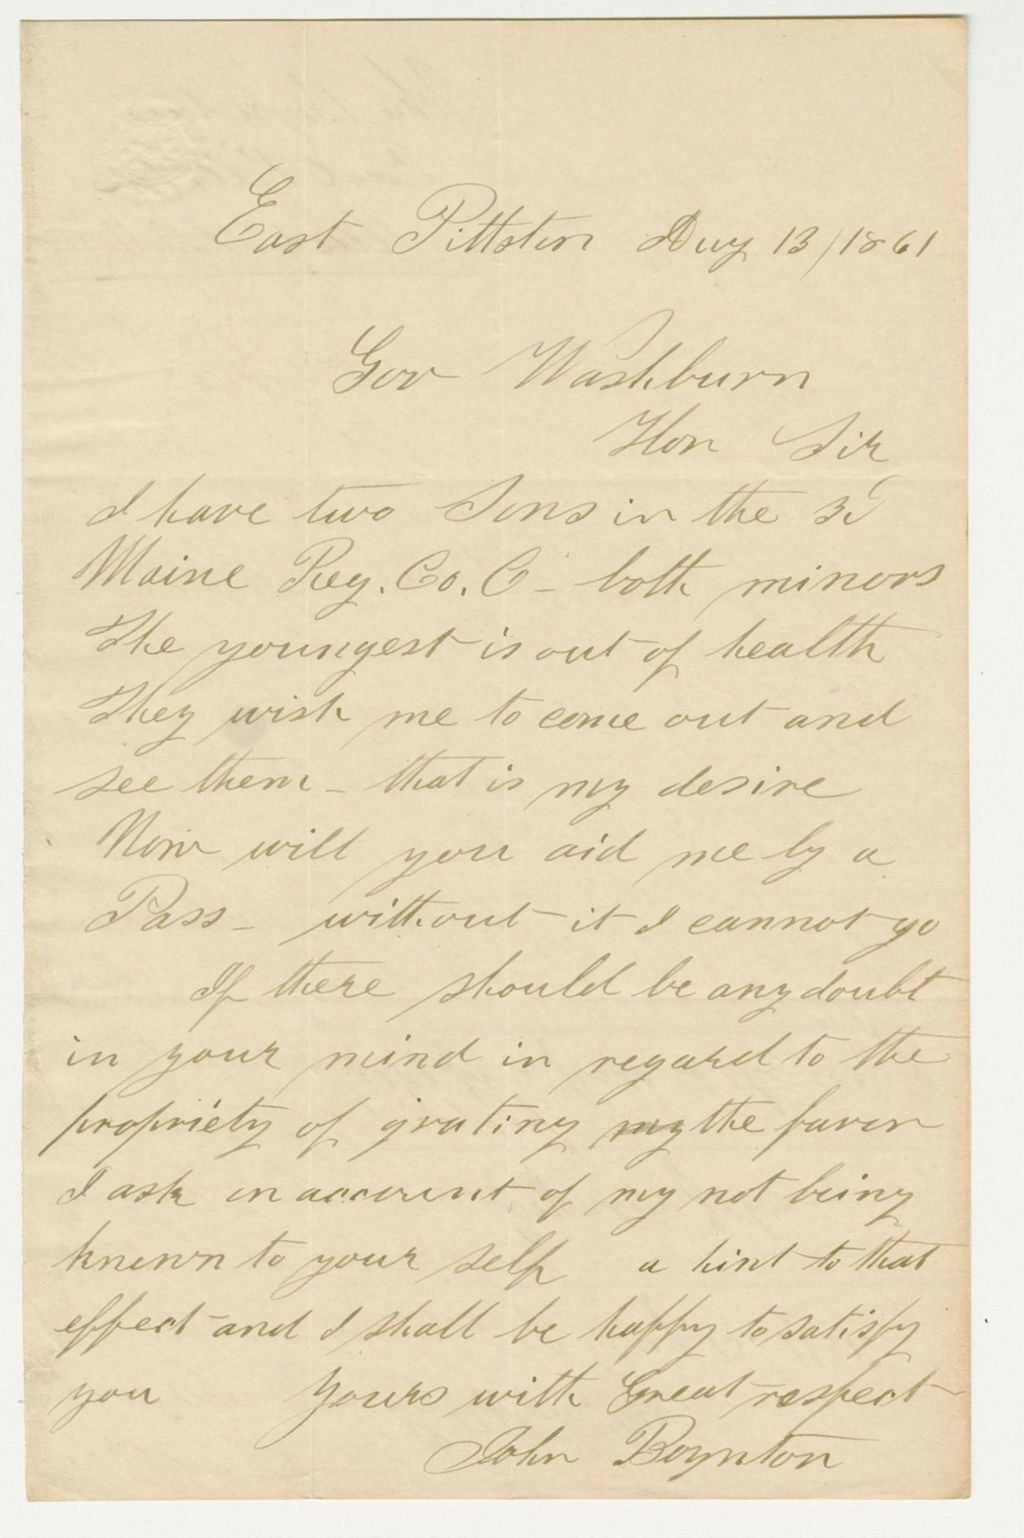 East Pittston Aug 13/1861
Gov Washburn
Hon Sir
I have two Sons in the 3d
Maine Reg. Co. C - both minors
The youngest is out of health
They wish me to come out and
see them - that is my desire
Now will you aid me by a
Pass - without it I cannot go
If there should be any doubt
in your mind in regard to the
propriety of grating my the favor
I ask on account of my not being
known to your self a hint to that
effect and I shall be happy to satisfy
you Yours with Great respect
John Boynton